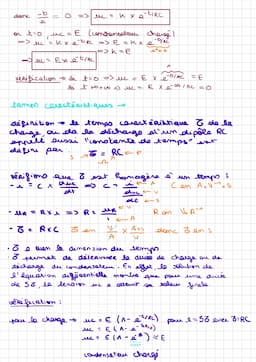 donc -b/a = 0 ⇒ uc = K × e^-t/RC
or t=0, uc = E (condensateur chargé)
→ uc = K × e^-t/RC → E = K × e^-0/RC
→ K = E
→ uc = E × e^-t/RC
vérification → t=0 ⇒ uc = E × e^-0/RC = E
temps caractéristique →
définition → le temps caractéristique τ de la
charge ou de la décharge d'un dipôle RC
appelé aussi "constante de temps" est
défini par τ = RC
vérifions que τ est homogène à un temps :
τ = R × C
τ a bien la dimension du temps
τ permet de déterminer la durée de charge ou de
décharge du condensateur. En effet, la solution de
l'équation différentielle montre que pour une durée
de 5τ, la tension uc a atteint sa valeur finale
vérification :
pour la charge → uc = E (1 - e^-t/RC) pour t = 5τ avec τ = RC
condensateur chargé